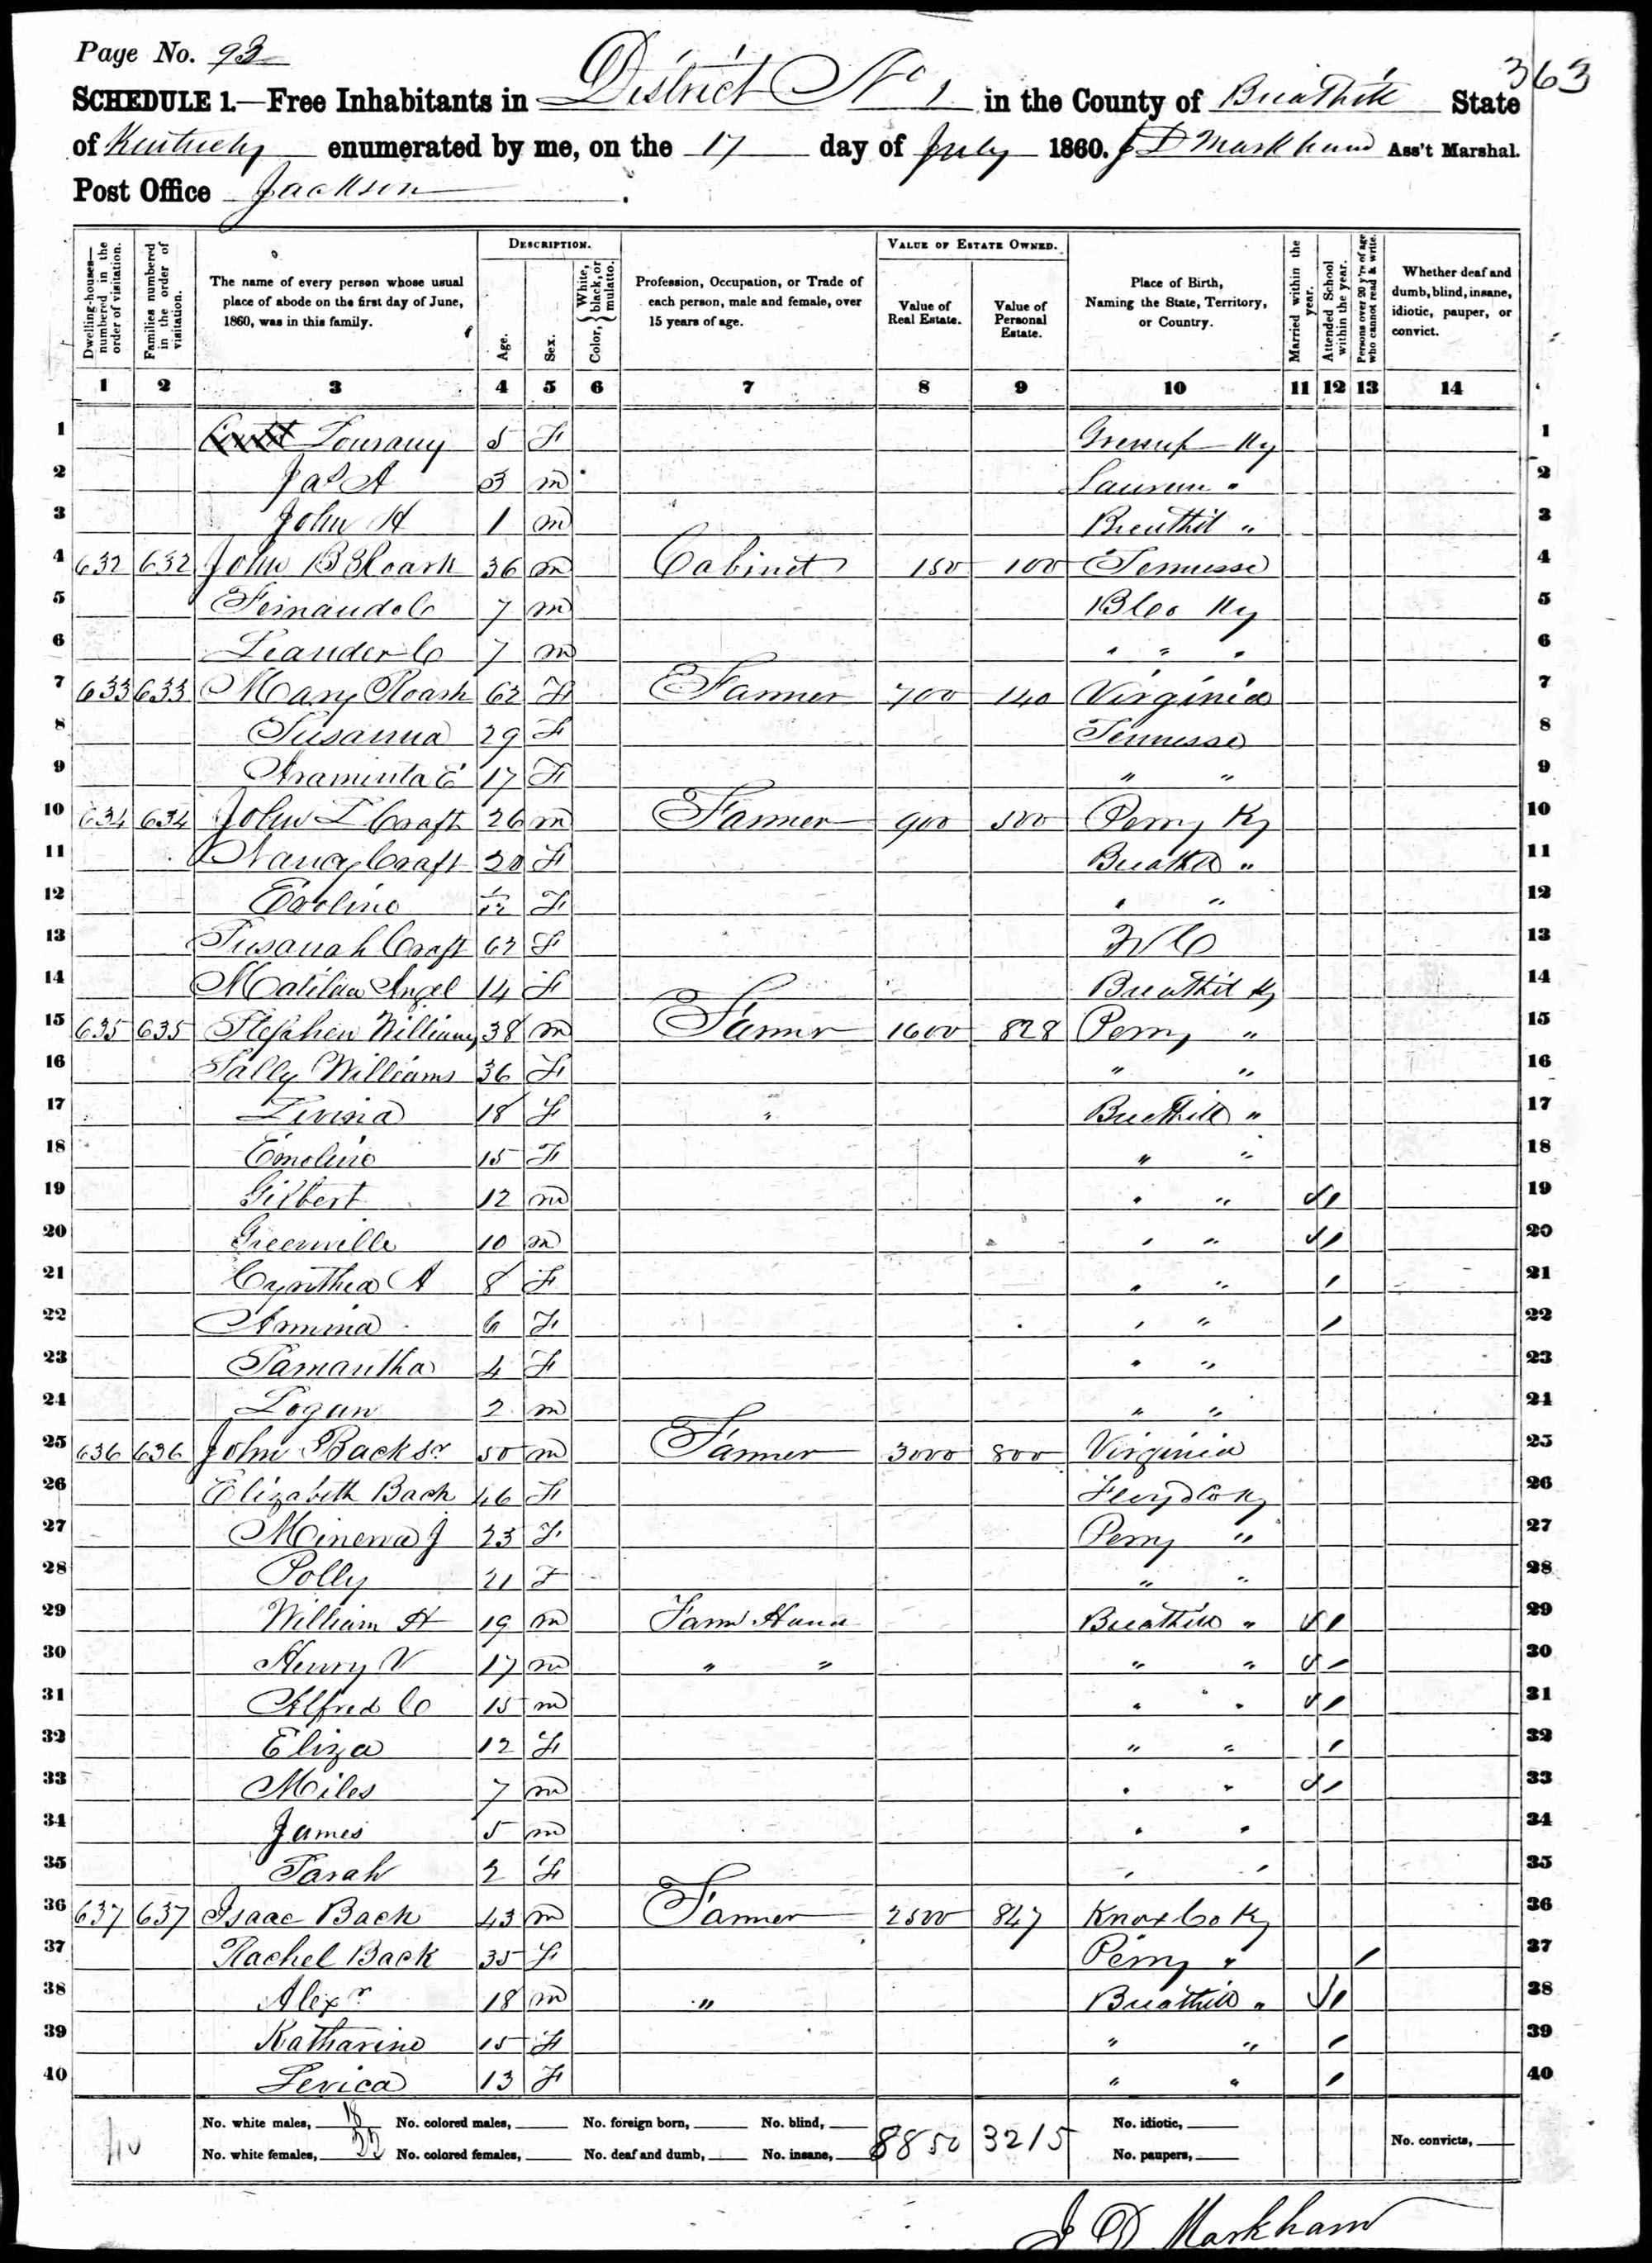 Page No. 93
363
SCHEDULE 1.—Free Inhabitants in District No 1 in the County of Breathitt State
of Kentucky enumerated by me, on the 17 day of July 1860. J D Markham Ass't Marshal.
Post Office Jackson.
DESCRIPTION. VALUE OF ESTATE OWNED.
Dwelling-houses—numbered in the order of visitation. Families numbered in the order of visitation. The name of every person whose usual place of abode on the first day of June, 1860, was in this family. Age. Sex. Color, {White, black, or mulatto. Profession, Occupation, or Trade of each person, male and female, over 15 years of age. Value of Real Estate. Value of Personal Estate. Place of Birth, Naming the State, Territory, or Country. Married within the year. Attended School within the year. Persons over 20 y'rs of age who cannot read & write. Whether deaf and dumb, blind, insane, idiotic, pauper, or convict.
1 2 3 4 5 6 7 8 9 10 11 12 13 14
1 Lourany 5 F Greenup Ky 1
2 Jas A 3 m " 2
3 John H 1 m Breathit " 3
4 632 632 John B Roark 36 m Cabinet 150 100 Tennesse 4
5 7 m Ky 5
6 Leander C 7 m " " " 6
7 633 633 Mary Roark 62 F Farmer 700 140 Virginia 7
8 Susanna 29 F Tennesse 8
9 Araminta E 17 F " " 9
10 634 634 John L Craft 26 m Farmer 900 500 Perry Ky 10
11 Nancy Craft 20 F Breathit " 11
12 Eveline F " " 12
13 Susanah Craft 62 F N C 13
14 Matilda Angel 14 F Breathit Ky 14
15 635 635 Stephen Williams 38 m Farmer 1600 828 Perry " 15
16 Sally Williams 36 F " " 16
17 Levina 18 F " Breathitt " 17
18 Emoline 15 F " " 18
19 Gilbert 12 m " " √ / 19
20 Greenville 10 m " " √ / 20
21 Cynthia A 8 F " " / 21
22 Armina 6 F " " / 22
23 Samantha 4 F " " 23
24 Logan 2 m " " 24
25 636 636 John Back Sr 50 m Farmer 3000 800 Virginia 25
26 Elizabeth Back 46 F Floyd Co Ky 26
27 Minerva J 23 F Perry " 27
28 Polly 21 F " " 28
29 William H 19 m Farm Hand Breathitt " √ / 29
30 Henry V 17 m " " " " √ / 30
31 Alfred C 15 m " " √ / 31
32 Eliza 12 F " " / 32
33 Miles 7 m " " √ / 33
34 James 5 m " " 34
35 Sarah 2 F " " 35
36 637 637 Isaac Back 43 m Farmer 2500 847 Knox Co Ky 36
37 Rachel Back 35 F Perry " / 37
38 Alexr 18 m " Breathitt " √ / 38
39 Katharine 15 F " " / 39
40 Levica 13 F " " / 40
40 No. white males, 18 No. colored males, No. foreign born, No. blind, 8850 3215 No. idiotic,
No. white females, 22 No. colored females, No. deaf and dumb, No. insane, No. paupers, No. convicts,
J D Markham